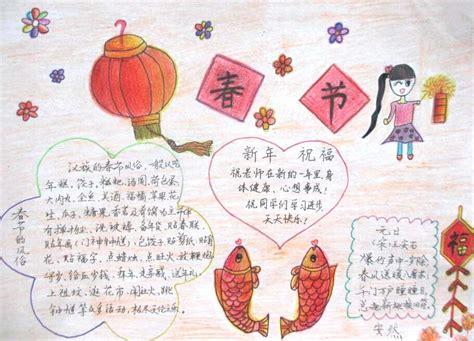 春节
新年 祝福
祝老师在新的一年里,身
体健康,心想事成!
祝同学们学习进步
天天快乐!
春节的风俗
汉族的春节风俗,一般以吃
年糕、饺子、糍粑、汤圆、荷包蛋、
大肉丸、全鱼、美酒、福橘、苹果、花
生、瓜子、糖果、香茗及肴馔为主并伴
有掸扬尘、洗被褥、备年货、贴春联、
贴年画、(门神钟馗)、包饺子、贴剪纸、贴窗
花、贴福字、点蜡烛、点旺火、放鞭炮、
守岁、给压岁钱、拜年、走亲戚、送年礼、
上祖坟、逛花市、闹社火、跳
钟馗等众多活动,极尽天伦之乐
元日
(宋)王安石
爆竹声中一岁除
春风送暖入屠苏。
千门万户曈曈日
总把新桃换旧符。
安然
福